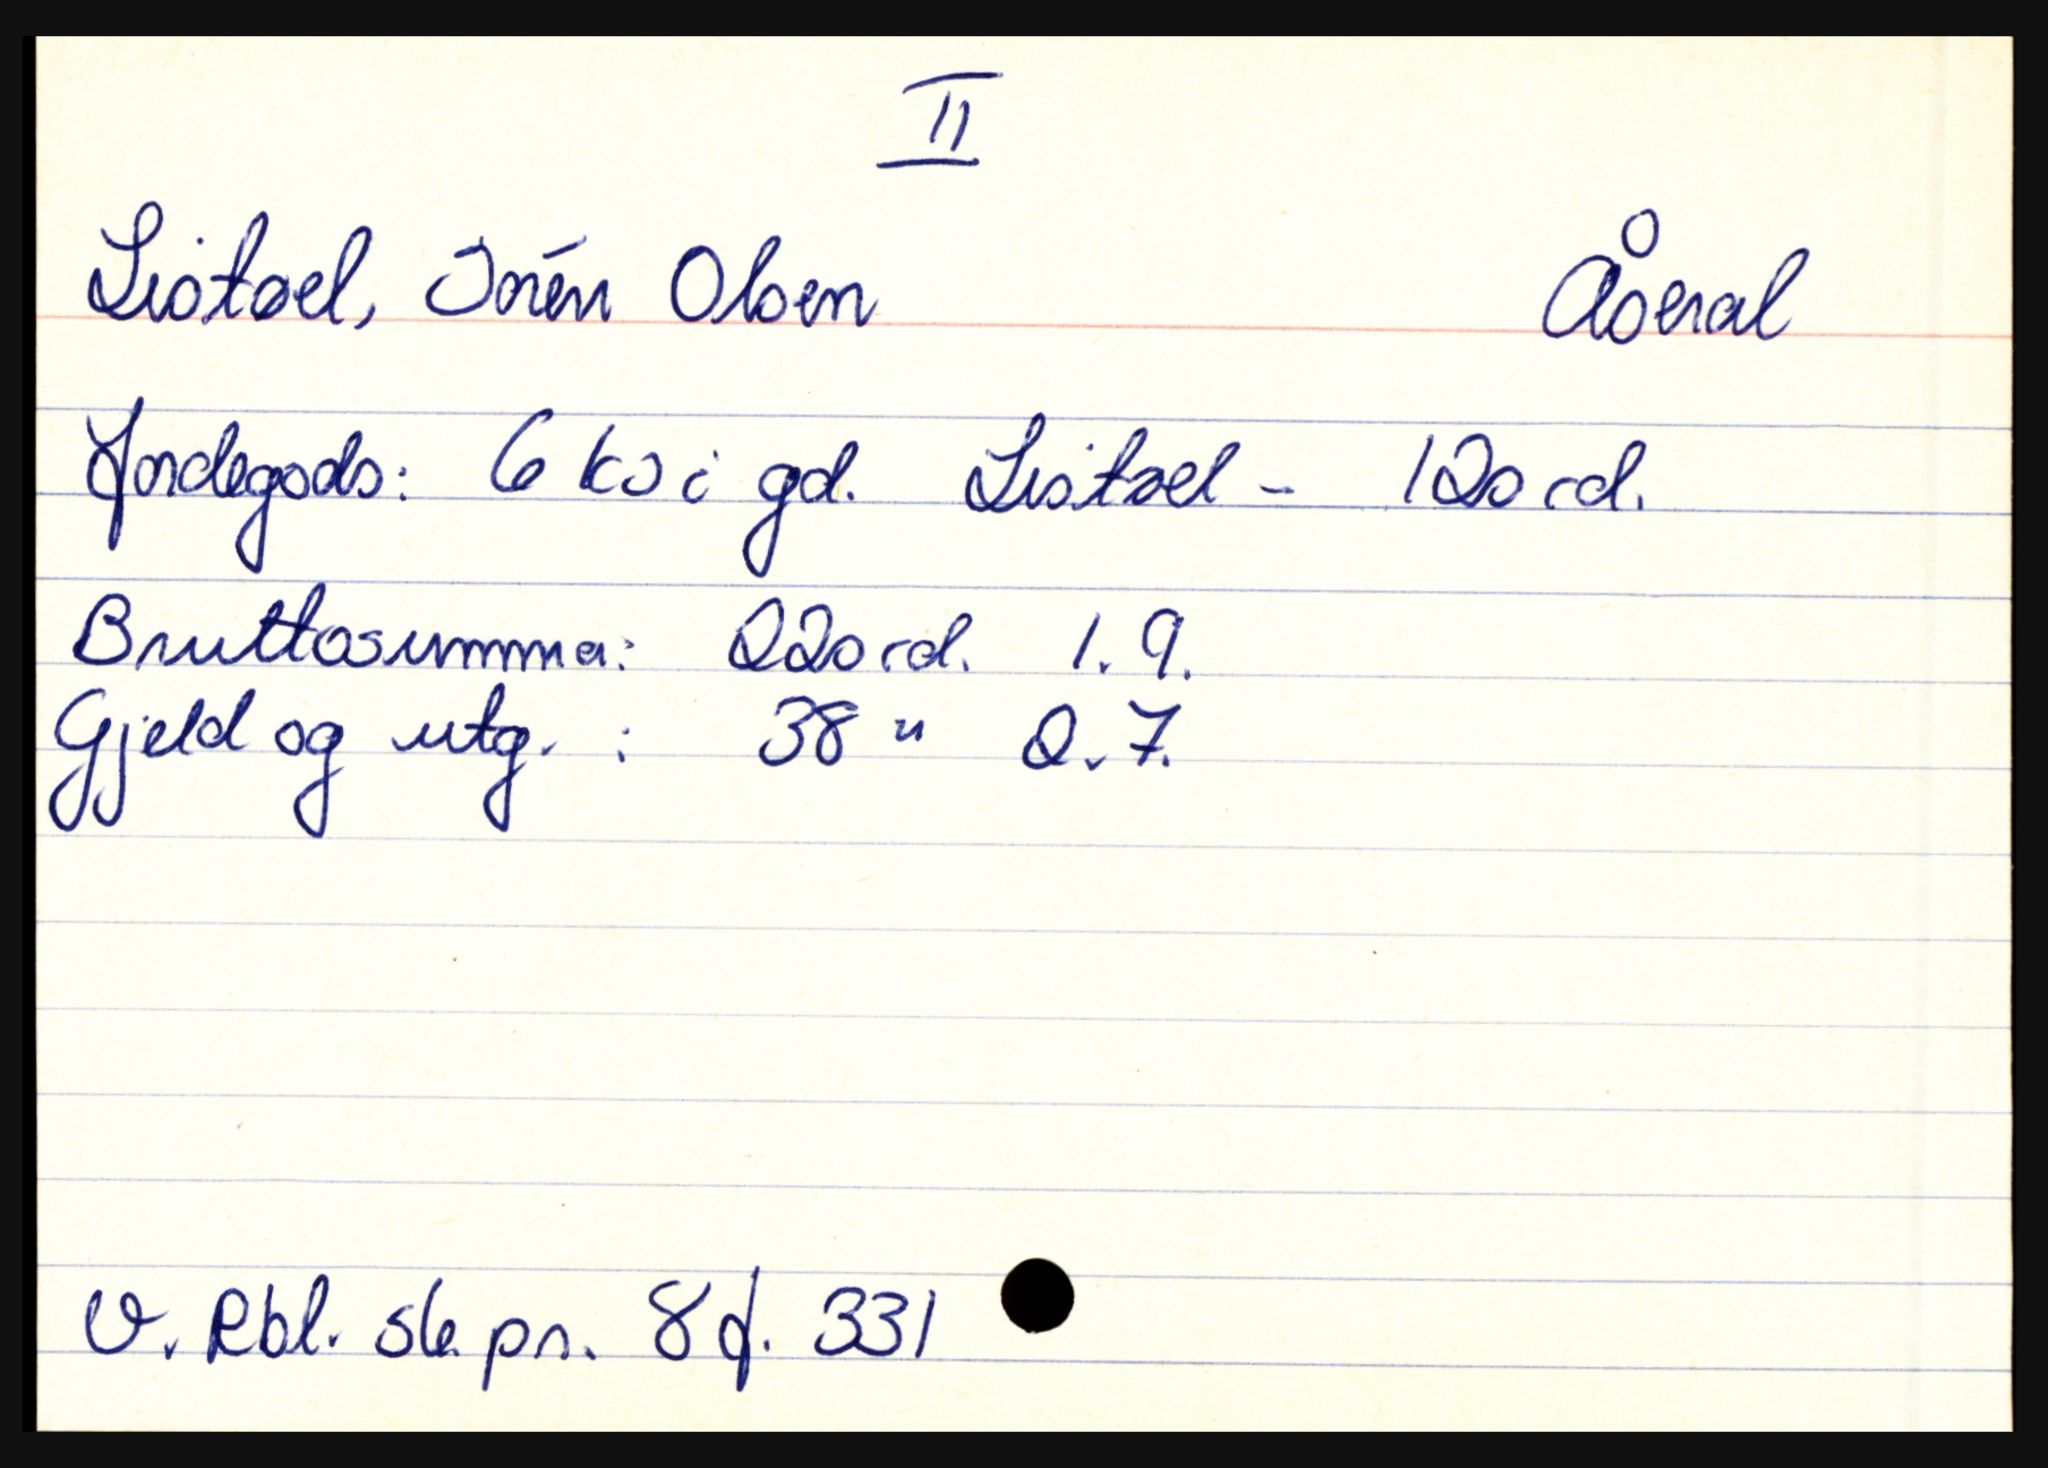 II
Listøel, Torén Olsen Åseral
Jordegods: 6 ks i gd. Listøel - 120 rd.
Bruttosumma: 220 rd. 1. 9.
Gjeld og utg. : 38 " 2. 7.
V. Rbl. sk. pr. 8 f. 331